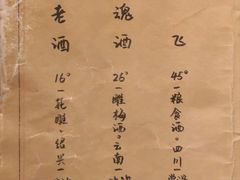 老酒
16°一花雕。绍兴一
魂酒
26°一雕梅酒。云南一
飞
45°一粮食酒。四川一